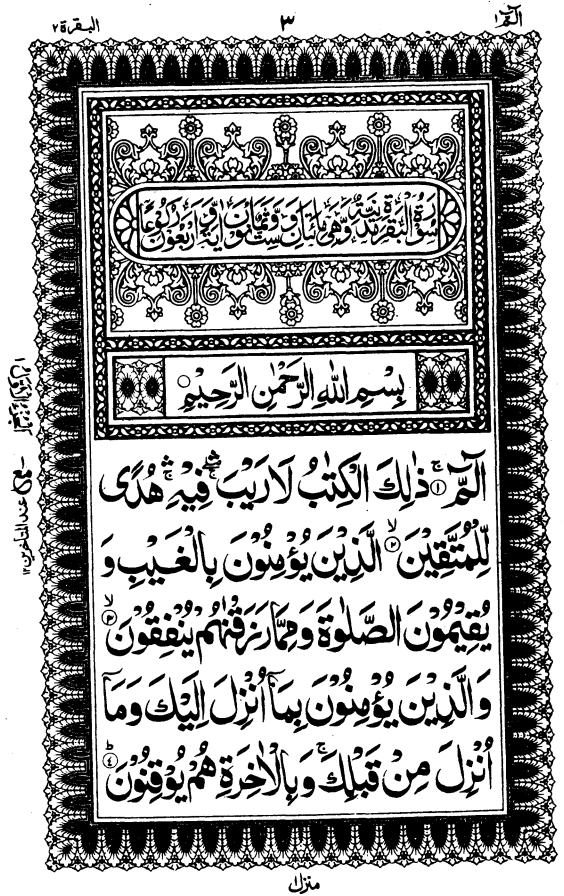 الٓمّٓ ١
٣
البقرة ٢
سُوْرَةُ الْبَقَرَةِ مَدَنِيَّةٌ وَّهِيَ مِائَتَانِ وَسِتٌّ وَّثَمَانُوْنَ اٰيَةً وَّاَرْبَعُوْنَ رُكُوْعًا
بِسْمِ اللّٰهِ الرَّحْمٰنِ الرَّحِيْمِ ○
الٓمّٓ ۚ﴿۱﴾ ذٰلِكَ الْكِتٰبُ لَا رَيْبَ ۛۖ فِيْهِ ۛۚ هُدًى
لِّلْمُتَّقِيْنَ ۙ﴿۲﴾ الَّذِيْنَ يُؤْمِنُوْنَ بِالْغَيْبِ وَ
يُقِيْمُوْنَ الصَّلٰوةَ وَمِمَّا رَزَقْنٰهُمْ يُنْفِقُوْنَ ۙ﴿۳﴾
وَالَّذِيْنَ يُؤْمِنُوْنَ بِمَاۤ اُنْزِلَ اِلَيْكَ وَمَاۤ
اُنْزِلَ مِنْ قَبْلِكَ ۚ وَبِالْاٰخِرَةِ هُمْ يُوْقِنُوْنَ ؕ﴿۴﴾
عند المتاخرين ١٢
منزل ١